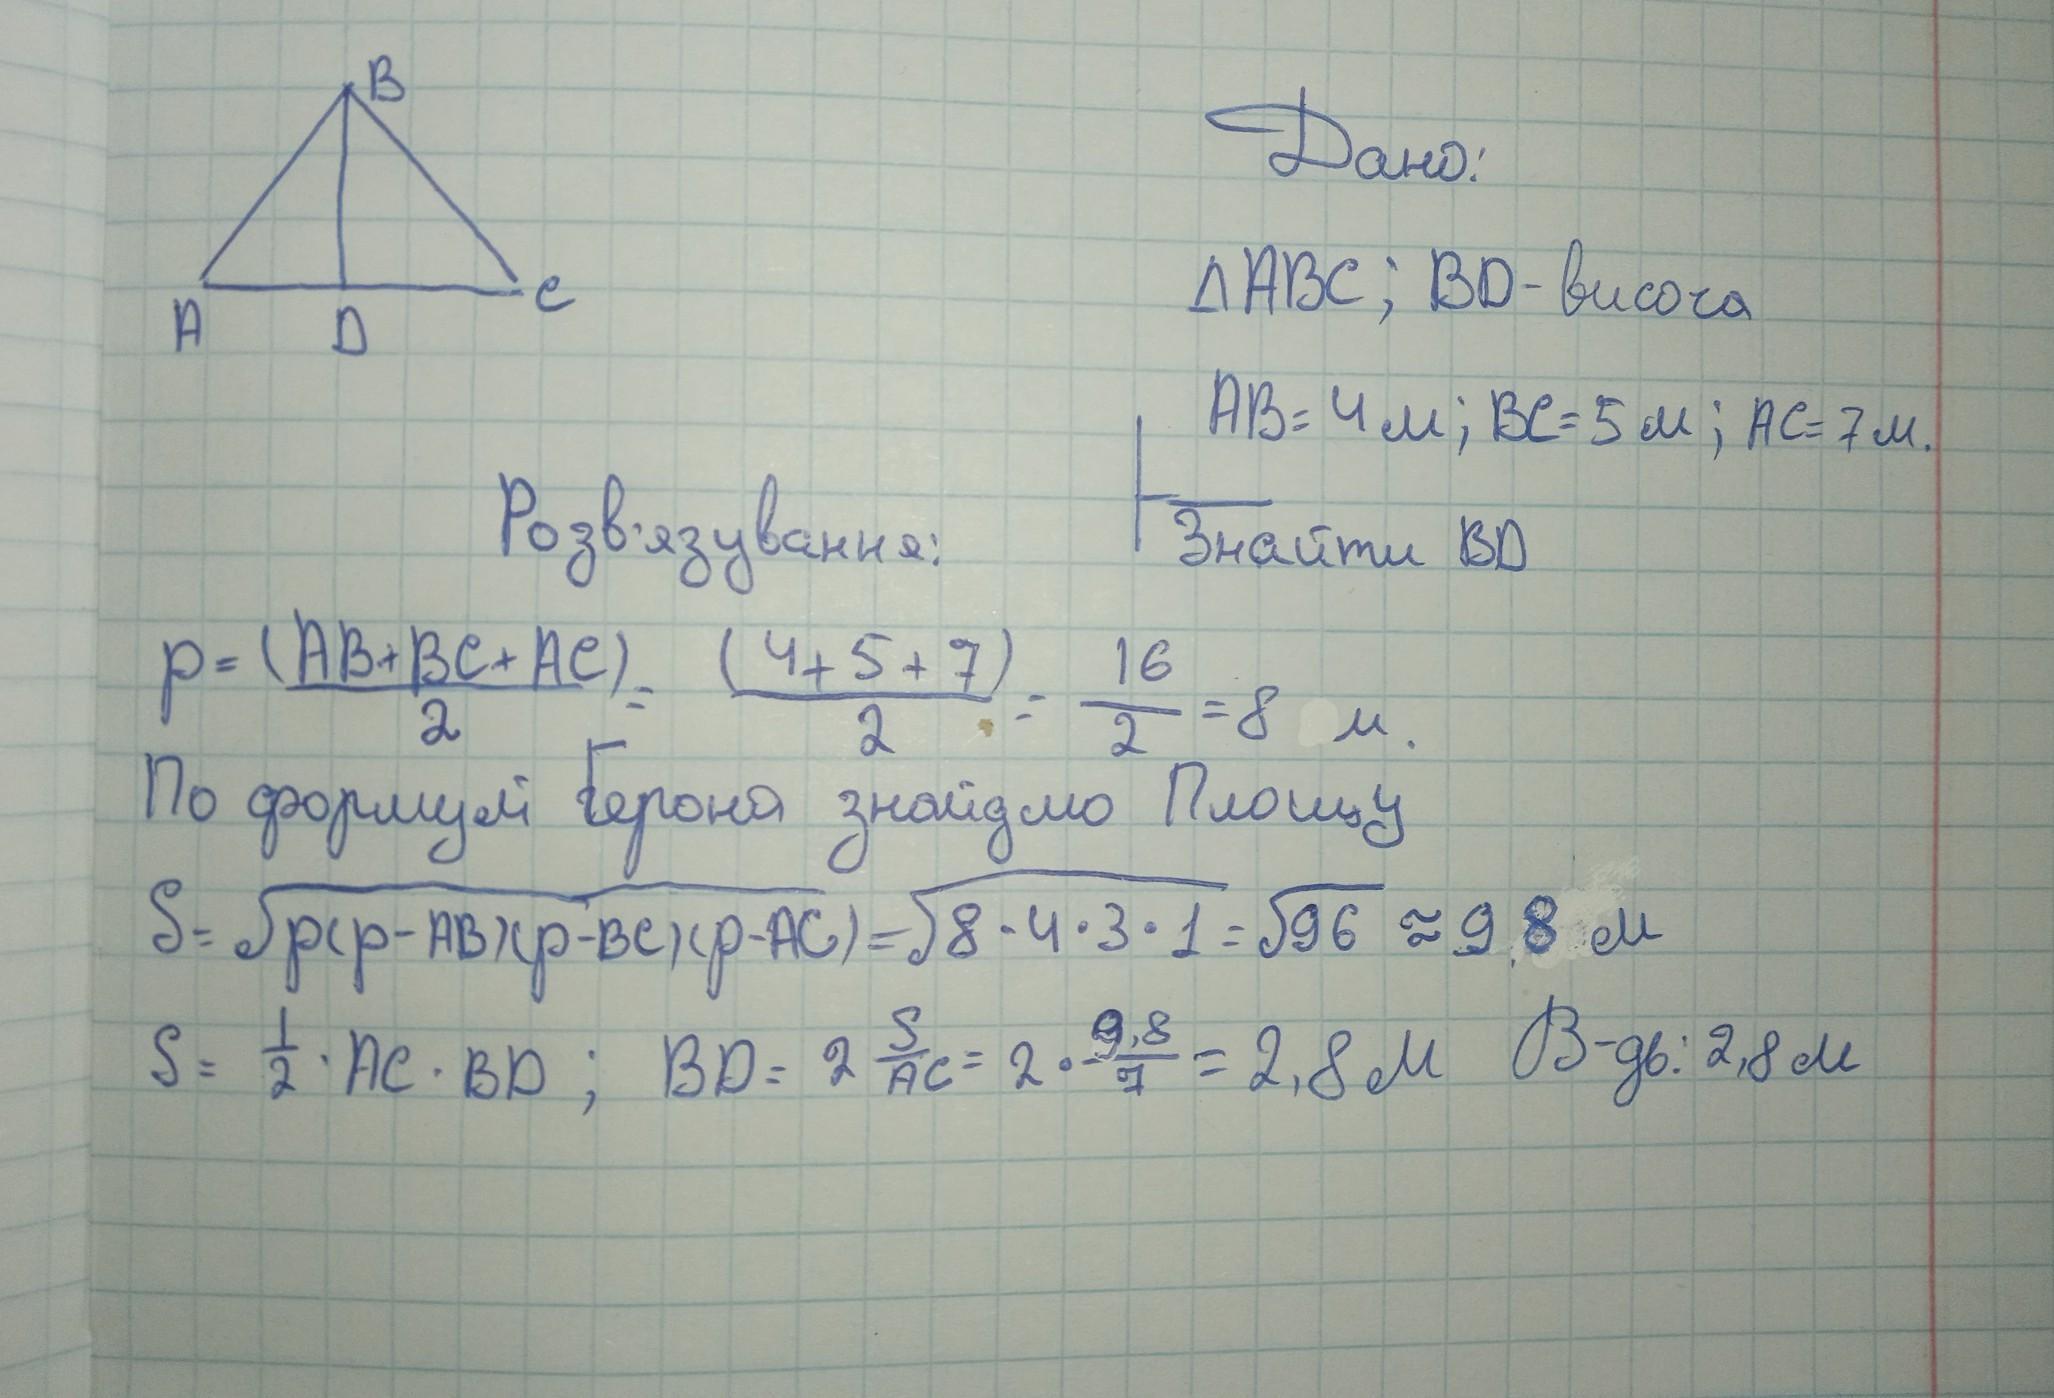 B
A D C
Дано:
△ABC; BD-висога
AB=4м; BC=5м; AC=7м.
Знайти BD
Розв'язування:
p=(AB+BC+AC)/2=(4+5+7)/2=16/2=8 м.
По формулі Герона знайдмо Площу
S=√p(p-AB)(p-BC)(p-AC)=√8·4·3·1=√96≈9,8 м
S=1/2·AC·BD; BD=2 S/AC=2·9,8/7=2,8м В-дь: 2,8м